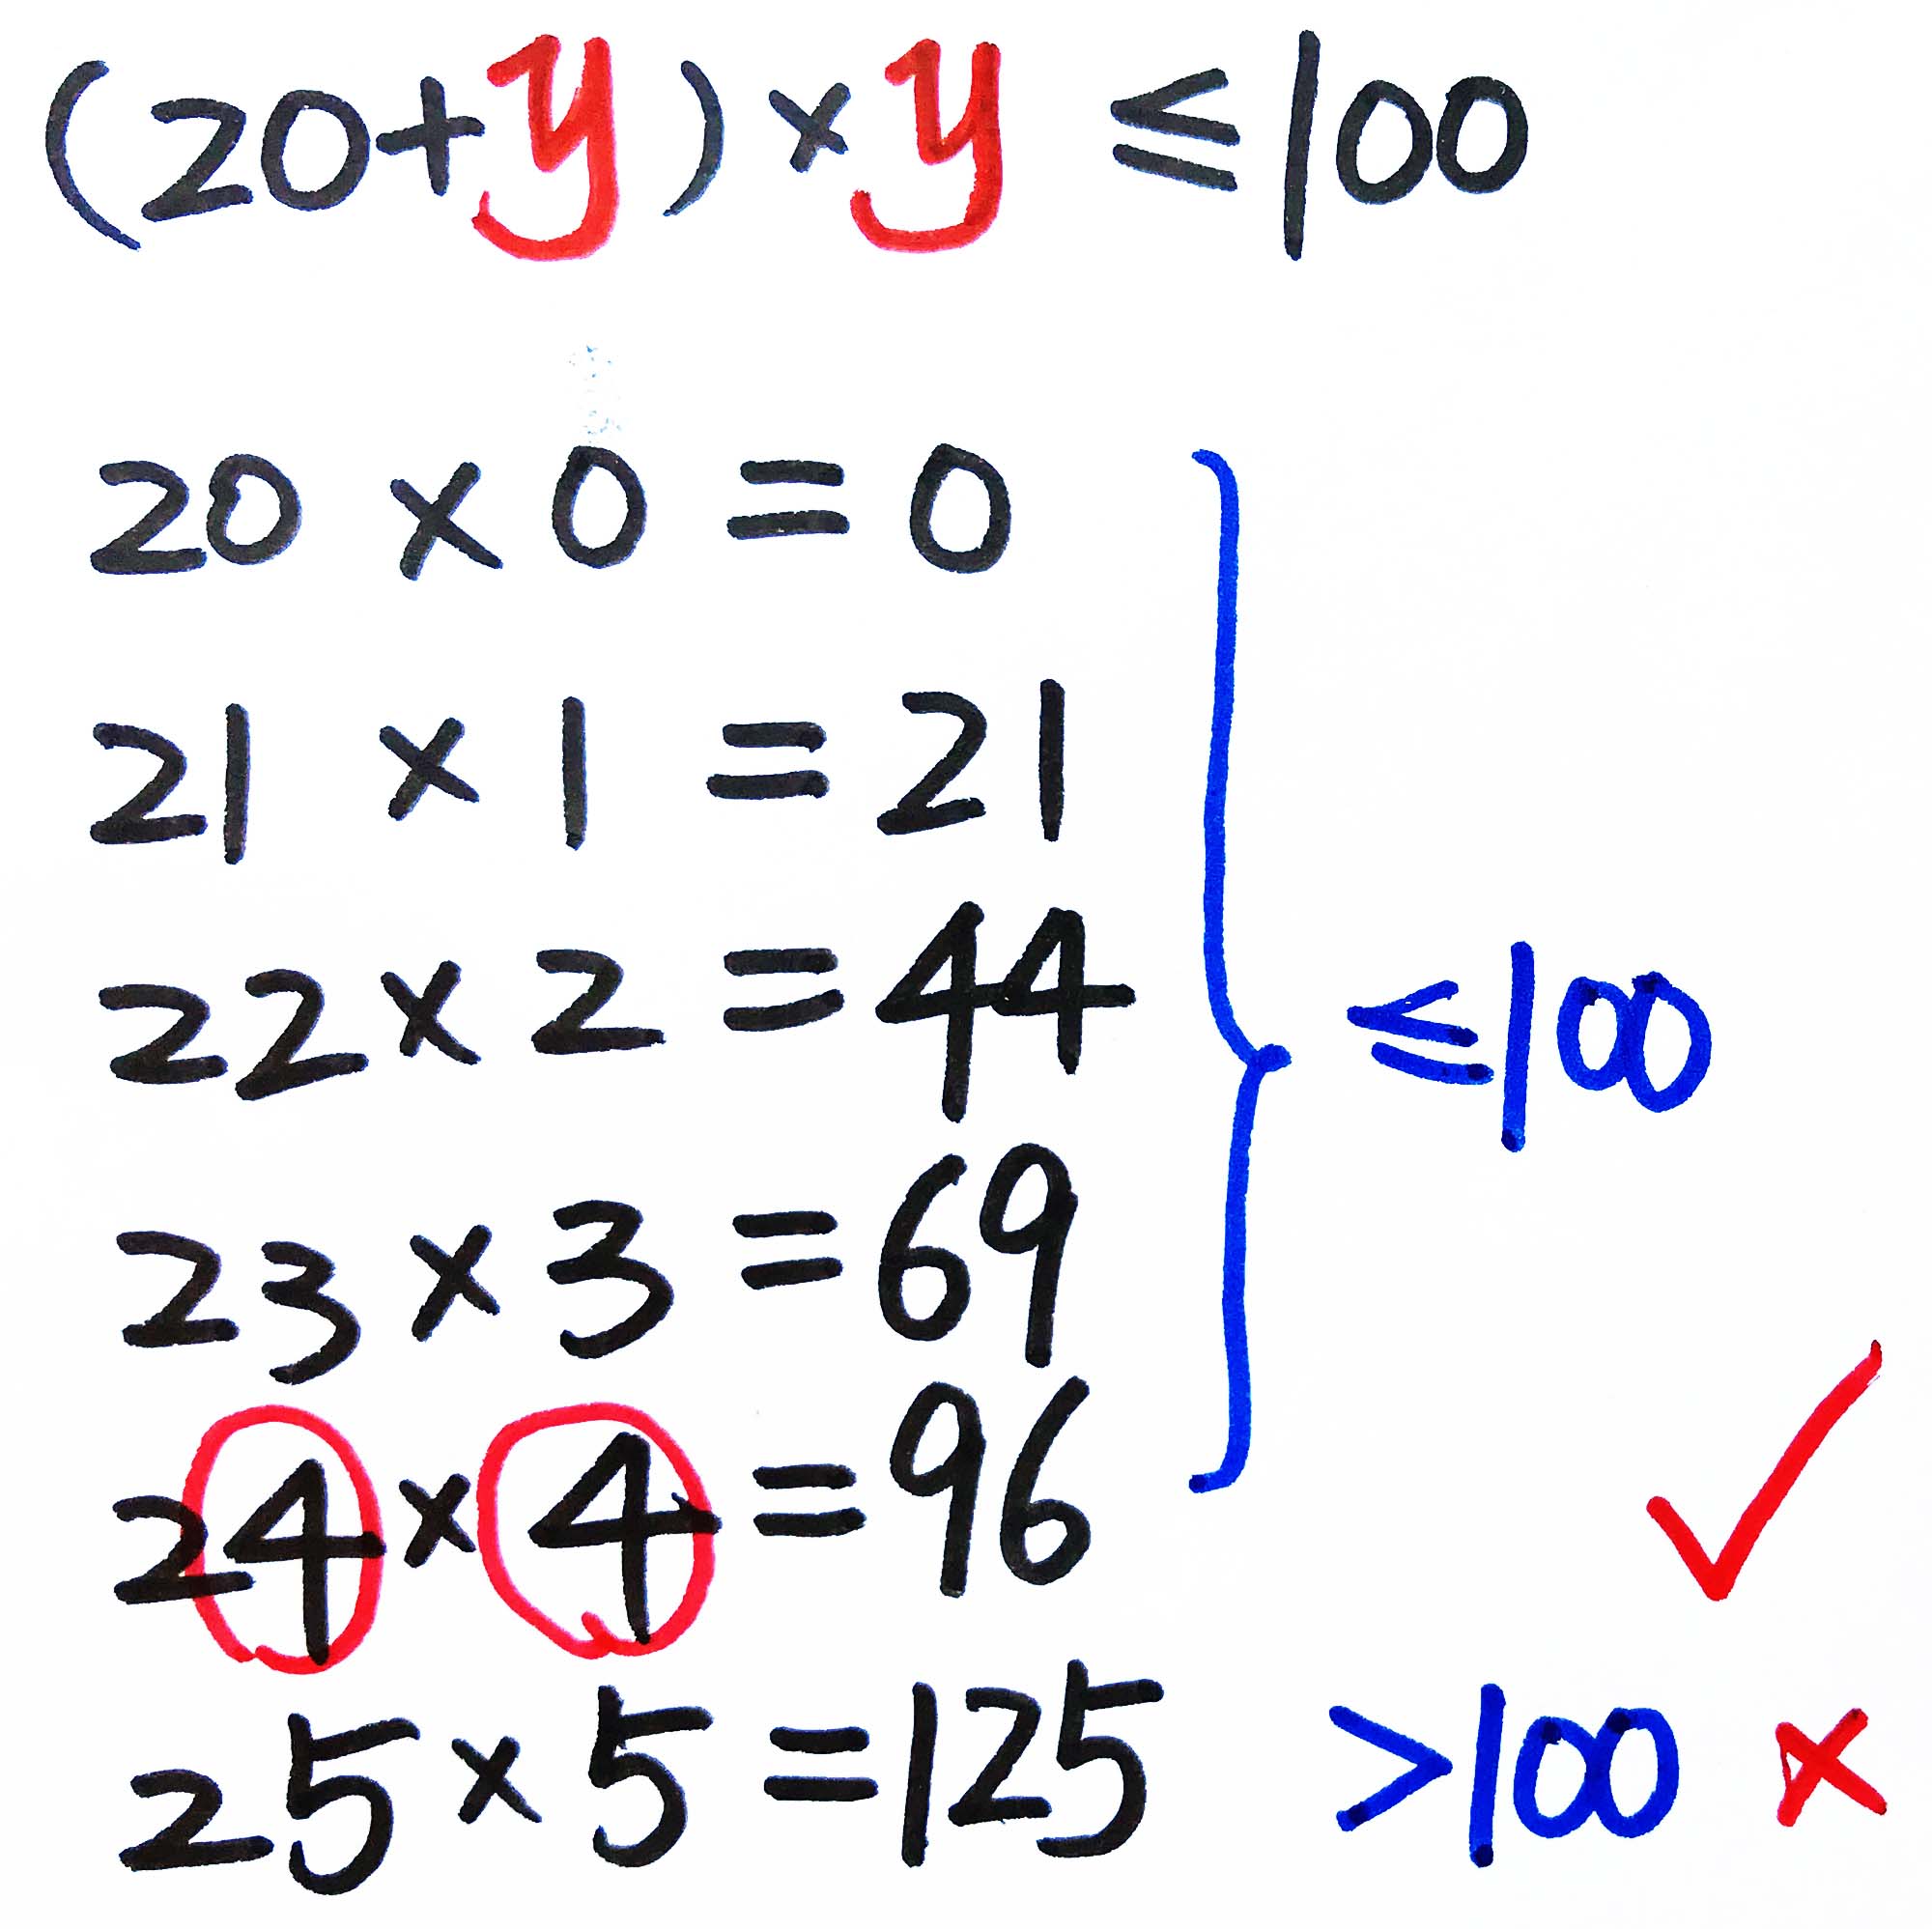 (20+y)×y ≤100
20 × 0 = 0
21 × 1 = 21
22 × 2 = 44
≤100
23 × 3 = 69
24 × 4 = 96 ✓
25 × 5 = 125 >100 ×